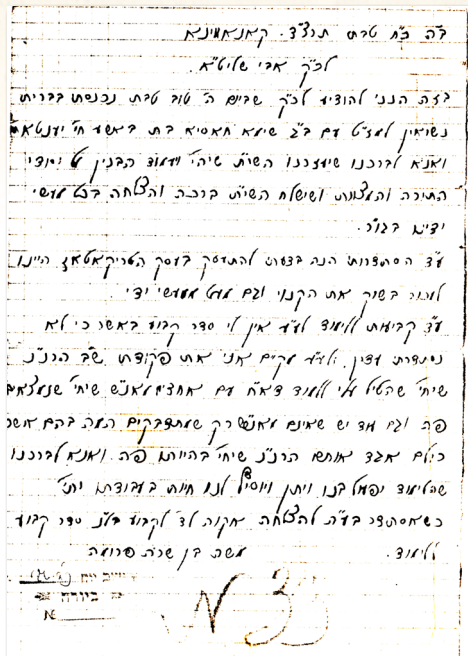 ב"ה כ"ח טבת תרצ"ד. קאנאטינא
לכ"ק אבי שליט"א.
בזה הנני להודיע לכ"ק שביום ה' טוב טבת נכנסתי בברית
נשואין למז"ט עם ב"ג שימא חאסיא בת באשע חי'
ואנא לברכנו שיעזרנו השי"ת שיהי' ויעמוד הבנין על יסודי
התורה והמצוות ושישלח השי"ת ברכה והצלחה בכל מעשי
ידינו בגו"ר.
ע"ד הסתדרותי הנה בדעתי להתעסק בעסק הטריקאטאז היינו
למכור בשוק את הקנוי וגם מעט ממעשי ידי
ע"ד קביעות ללימוד לע"ע אין לי סדר קבוע באשר כי לא
נסתדרתי עדין. ולע"ע מקים אני את פקודת ש"ב הרנ"נ
שיחי' שהטיל עלי ללמוד דא"ח עם אחדים מאנ"ש שיחי' שנמצאים
פה וגם עוד יש שאינם מאנ"ש רק שמתדבקים המה בהם אשר
כולם אגד אותם הרנ"נ שיחי' בהיותו פה ואנא לברכנו
שהלימוד יפעל בנו ויתן ויוסיף לנו חיות בעבודתו ית'
כשאסתדר בע"ה להצלחה אקוה לד' לקבוע בל"נ סדר קבוע
ללימוד.
משה בן שרה פרומה
ביורה
№
№ 33